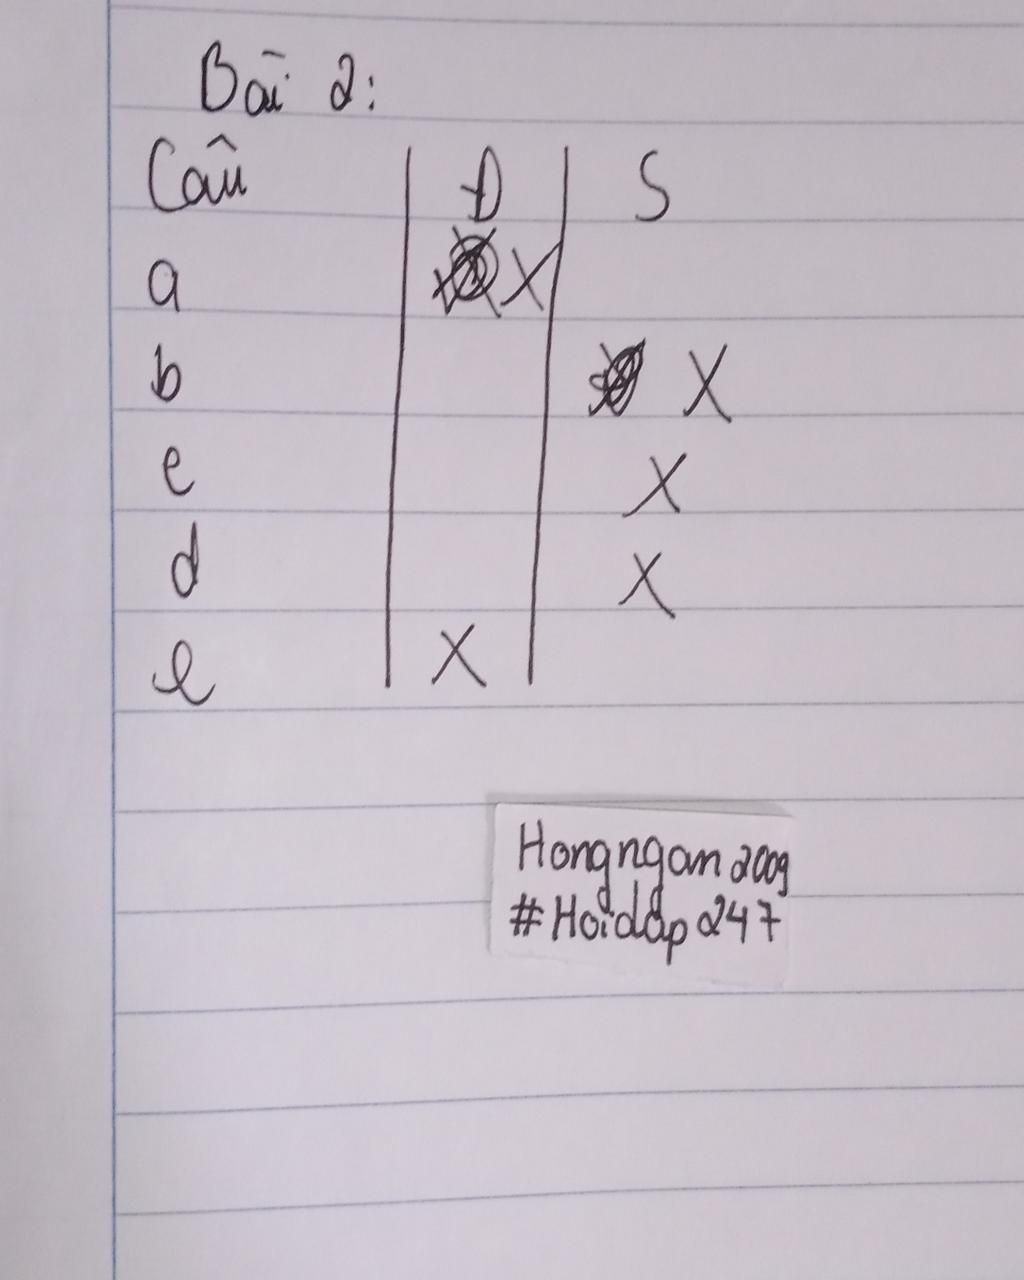 Bài 2:
Câu Đ S
a X
b X
c X
d X
e X
Hongngam2009
#Hoidap247